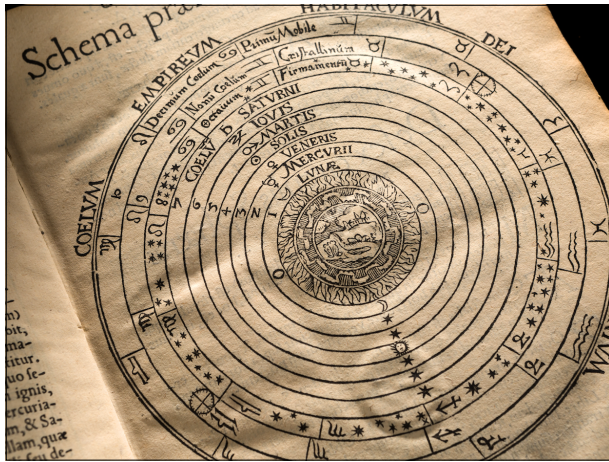 Schema
COELVM EMPIREVM HABITACVLVM DEI
Decimum Coelum Primũ Mobile
Nonũ Coelum Cristallinũm
Octauum Firmamentũ
COELV SATVRNI
IOVIS
MARTIS
SOLIS
VENERIS
MERCVRII
LVNÆ
m)
bit,
ma-
titur.
uo se-
n ignis,
ercuria-
m, & Sa-
llam, quæ
feu de-